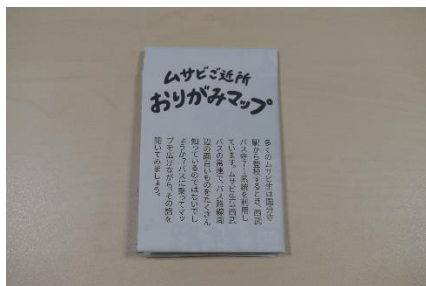 ムサビご近所
おりがみマップ
多くのムサビ生は国分寺
駅から登校するとき、西武
バス寺一系統を利用し
ています。ムサビ生は西武
バスの常連で、バス路線周
辺の面白いものをたくさん
知っているのではないでし
ょうか？バスに乗ってマッ
プを広げながら、その話を
聞いてみましょう。